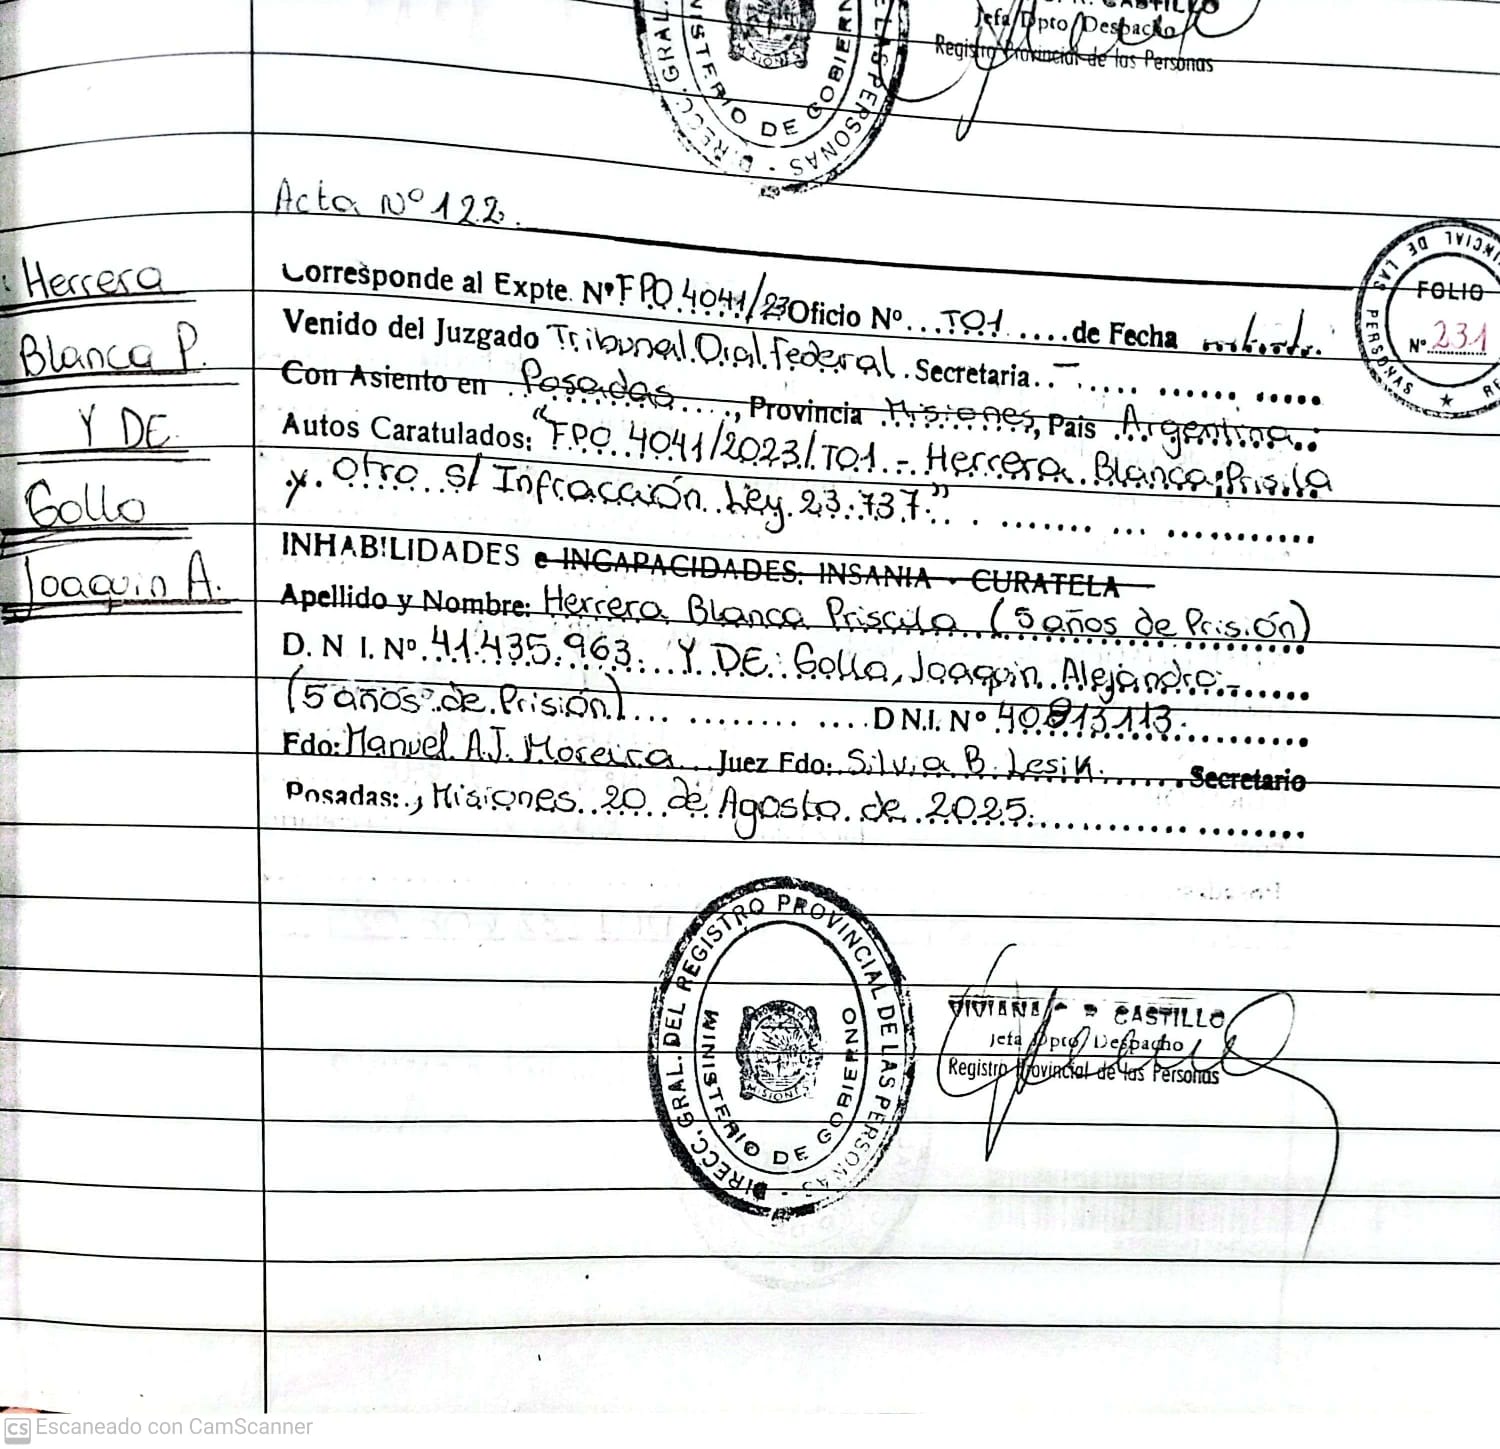 CASTILLO
Jefa Dpto Despacho
Registro Provincial de las Personas
DIRECC. GRAL. MINISTERIO DE GOBIERNO DE LAS PERSONAS
MISIONES
Acta Nº 122.
Herrera
Blanca P.
Y DE
Gollo
Joaquin A.
FOLIO
Nº 231
PERSONAS
Corresponde al Expte. Nº FPO 4041/23 Oficio Nº... TO1 .....de Fecha
Venido del Juzgado Tribunal Oral Federal. Secretaria..-....
Con Asiento en Posadas...., Provincia Misiones, País Argentina..
Autos Caratulados: "FPO 4041/2023/TO1.- Herrera Blanca; Prisila
y. otro. s/ Infracción Ley. 23.737"..
INHABILIDADES e INCAPACIDADES. INSANIA - CURATELA
Apellido y Nombre: Herrera Blanca Priscila (5 años de Prisión)
D. N I. Nº 41.435.963. Y DE: Gollo, Joaquin Alejandro.-
(5 años de Prisión)... ........ .... D N.I. Nº 40813113.
Fdo: Manuel A.J. Moreira Juez Fdo: Silvia B. Lesik. Secretario
Posadas:., Misiones. 20 de Agosto de 2025.
DIRECC. GRAL. DEL REGISTRO PROVINCIAL DE LAS PERSONAS
MINISTERIO DE GOBIERNO
MISIONES
VIVIANA CASTILLO
Jefa Dpto Despacho
Registro Provincial de las Personas
CS Escaneado con CamScanner